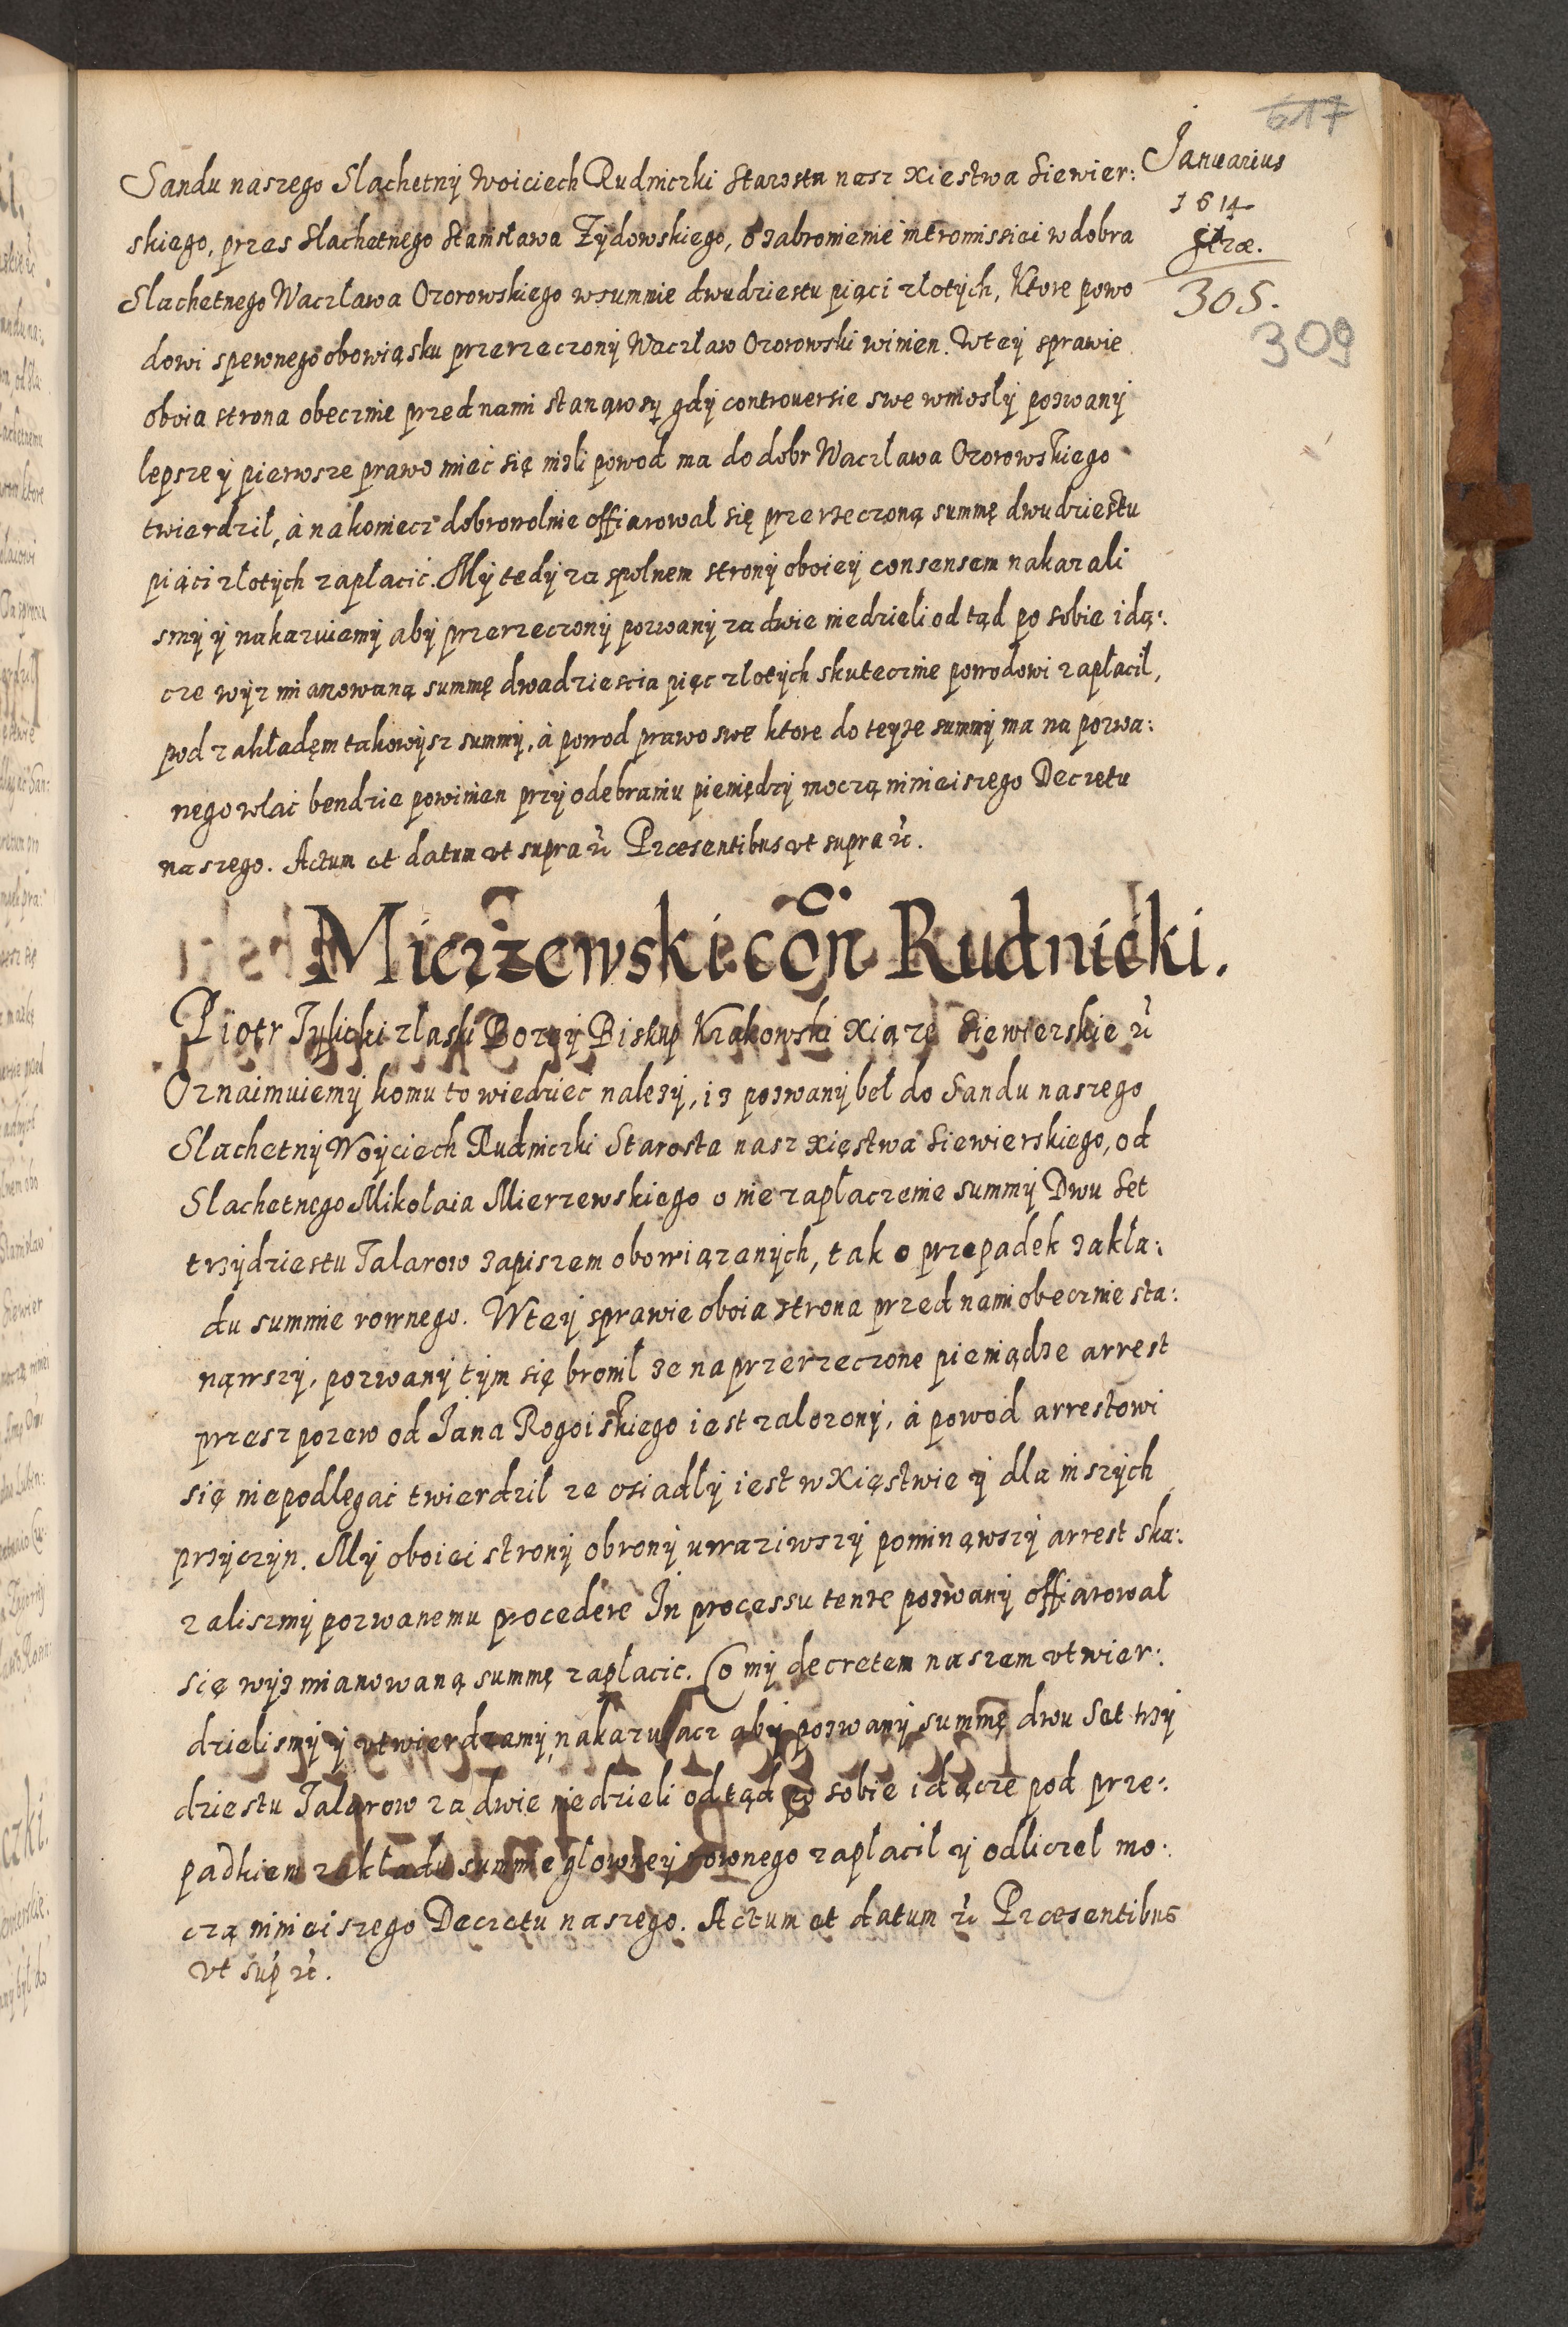 617
Januarius
1614
305.
309
Sandu naszego Slachetny Woiciech Rudniczki Starosta nasz Xiestwa Siewier:
skiego, przes Slachetnego Stanisława Zydowskiego, o zabronienie intromissiei w dobra
Slachetnego Waczława Ozorowskiego w summie dwudziestu piąci złotych, Ktore powo
dowi spewnego obowiąsku przerzeczony Waczław Ozorowski winien. Wtey sprawie
oboia strona obecznie przed nami stanąwsy gdy controuersie swe wniosły pozwany
lepsze y pierwsze prawo mieć się nizli powod ma do dobr Waczława Ozorowskiego
twierdził, à nakoniecz dobrowolnie offiarował się przerzeczoną summę dwudziestu
piąci złotych zapłacić. My tedy za spolnem strony oboiey consensem nakazali
smy y nakazuiemy aby przerzeczony pozwany za dwie niedzieli od tąd po sobie idą:
cze wyz mianowaną summę dwadziescia pięc złotych skutecznie powodowi zapłacił,
pod zakładęm takowysz summy, à powod prawo swe ktore do teyze summy ma na pozwa:
nego wlać bendzie powinien przy odebraniu pieniędzy moczą ninieiszego Decretu
naszego. Actum et datum vt supra &c Præsentibus vt supra &c.
Mierzewski con Rudnicki.
Piotr Tylicki złaski Bozey Biskup Krakowski Xiąze Siewierskie &c
Oznaimuiemy komu to wiedzieć nalezy, iz pozwany beł do Sandu naszego
Slachetny Woyciech Rudniczki Starosta nasz xięstwa Siewierskiego, od
Slachetnego Mikołaia Mierzewskiego o nie zapłaczenie summy Dwu Set
trzydziestu Talarow zapiszem obowiązanych, tak o przepadek zakła:
du summie rownego. Wtey sprawie oboia strona przed nami obecznie sta:
nąwszy, pozwany tym się bronił ze na przerzeczone pieniądze arrest
przesz pozew od Jana Rogoiskiego iest załozony, à powod arrestowi
się niepodlegać twierdził ze osiadły iest w Xięstwie y dla inszych
przyczyn. My oboiei strony obrony uwaziwszy pominąwszy arrest ska:
zaliszmy pozwanemu procedere In processu tenze pozwany offiarował
się wyz mianowaną summę zapłacic. Co my decretem naszem vtwier:
dzielismy y vtwierdzamy, nakazuiacz aby pozwany summę dwu Set trzy
dziestu Talarow za dwie niedzieli odtąd po sobie idącze pod prze:
padkiem zakładu summie głowney rownego zapłacił y odliczeł mo:
czą ninieiszego Decretu naszego. Actum et datum &c Præsentibus
vt sup &c.